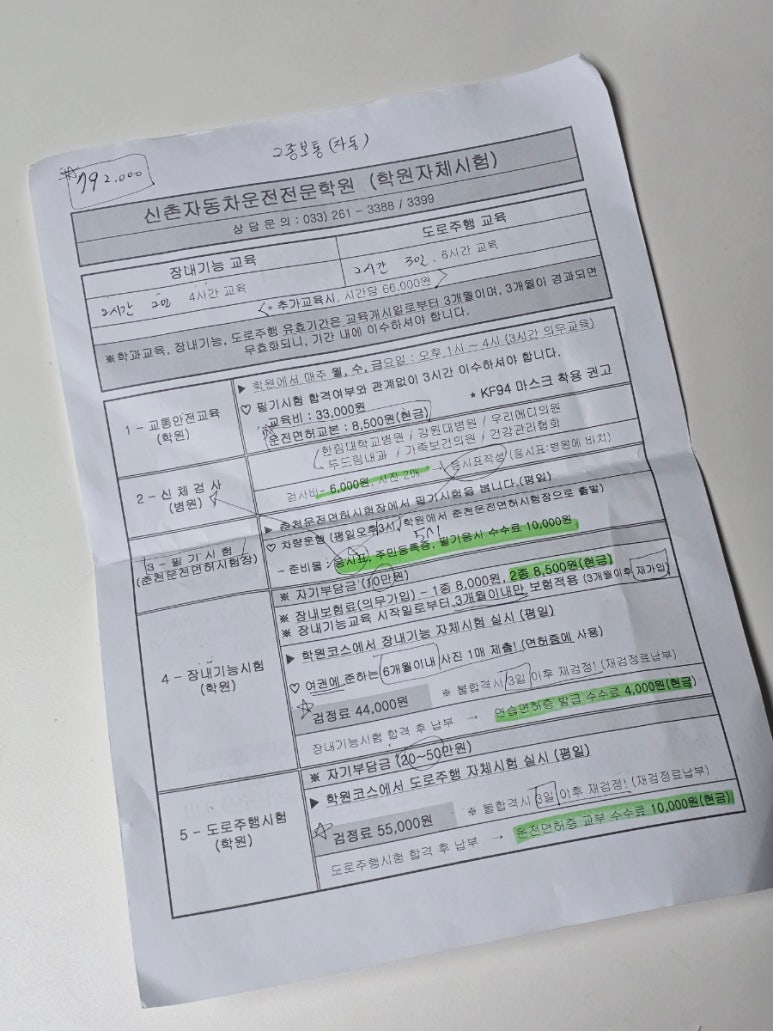 2종보통(자동)
792.000
신촌자동차운전전문학원 (학원자체시험)
상담문의 : 033) 261 - 3388 / 3399
장내기능 교육
도로주행 교육
2시간 2일 4시간 교육
2시간 3일. 6시간 교육
* 추가교육시, 시간당 66,000원
※학과교육, 장내기능, 도로주행 유효기간은 교육개시일로부터 3개월이며, 3개월이 경과되면
무효화되니, 기간 내에 이수하셔야 합니다.
1 - 교통안전교육
(학원)
▶ 학원에서 매주 월, 수, 금요일 : 오후 1시 ~ 4시 (3시간 의무교육)
♡ 필기시험 합격여부와 관계없이 3시간 이수하셔야 합니다.
교육비 : 33,000원
* KF94 마스크 착용 권고
운전면허교본 : 8,500원(현금)
2 - 신체검사
(병원)
한림대학교병원 / 강원대병원 / 우리메디의원
무드림내과 / 가족보건의원 / 건강관리협회
검사비- 6,000원, 사진 2매 응시표작성 (응시표:병원에 비치)
3 - 필기시험
(춘천운전면허시험장)
▶ 춘천운전면허시험장에서 필기시험을 봅니다.(평일)
♡ 차량운행 (평일오후3시, 학원에서 춘천운전면허시험장으로 출발)
5시
- 준비물 : 응시표, 주민등록증, 필기응시 수수료 10,000원
4 - 장내기능시험
(학원)
※ 자기부담금 (10만원)
※ 장내보험료(의무가입) - 1종 8,000원, 2종 8,500원(현금)
※ 장내기능교육 시작일로부터 3개월이내만 보험적용 (3개월이후 재가입)
▶ 학원코스에서 장내기능 자체시험 실시 (평일)
♡ 여권에 준하는 6개월이내 사진 1매 제출! (면허증에 사용)
☆ 검정료 44,000원
※ 불합격시 3일 이후 재검정! (재검정료납부)
장내기능시험 합격 후 납부 → 연습면허증 발급 수수료 4,000원(현금)
5 - 도로주행시험
(학원)
※ 자기부담금 (20~50만원)
▶ 학원코스에서 도로주행 자체시험 실시 (평일)
☆ 검정료 55,000원
※ 불합격시 3일 이후 재검정! (재검정료납부)
도로주행시험 합격 후 납부 → 운전면허증 교부 수수료 10,000원(현금)